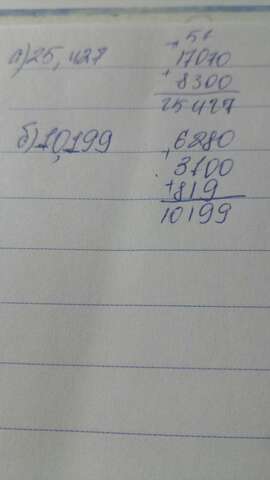 а) 25,427
57
17070
+ 8300
25427
б) 10199
6280
+ 3100
+ 819
10199